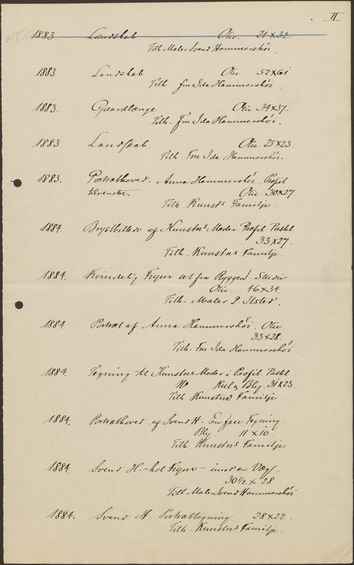 II.
1883 Landskab Olie. 21x32
Tilh. Maler Svend Hammershøi.
1883 Landskab Olie 52x61
Tilh. fru Ida Hammershøi.
1883. Gaardlænge Olie 34x37.
Tilh. fru Ida Hammershøi.
1883 Landskab Olie 25x23.
Tilh. Fru Ida Hammershøi.
1883. Portræthoved. Anna Hammershøi. Profil
venstre. Olie 30x27
Tilh. Kunstn's Familje
1884 Brystbillede af Kunstn's Moder Profil
33x27
Tilh. Kunstn's Familje
1884. Kvindelig Figur set fra Ryggen. Studie
Olie 46x34
Tilh. Maler P. Ilsted.
1884. Portræt af Anna Hammershøi Olie
35x28.
Tilh. Fru Ida Hammershøi
1884. Tegning til Kunstners Moder i Profil
Bly 31x23
Tilh Kunstners Familje
1884. Portræthoved af Svend H. En face Tegning
Bly 11x10
Tilh Kunstners Familje
1884 Svend H. hel Figur
30½x28
Tilh. Maler Svend Hammershøi
1884. Svend H. Portrættegning 28x22.
Tilh. Kunstners Familje.